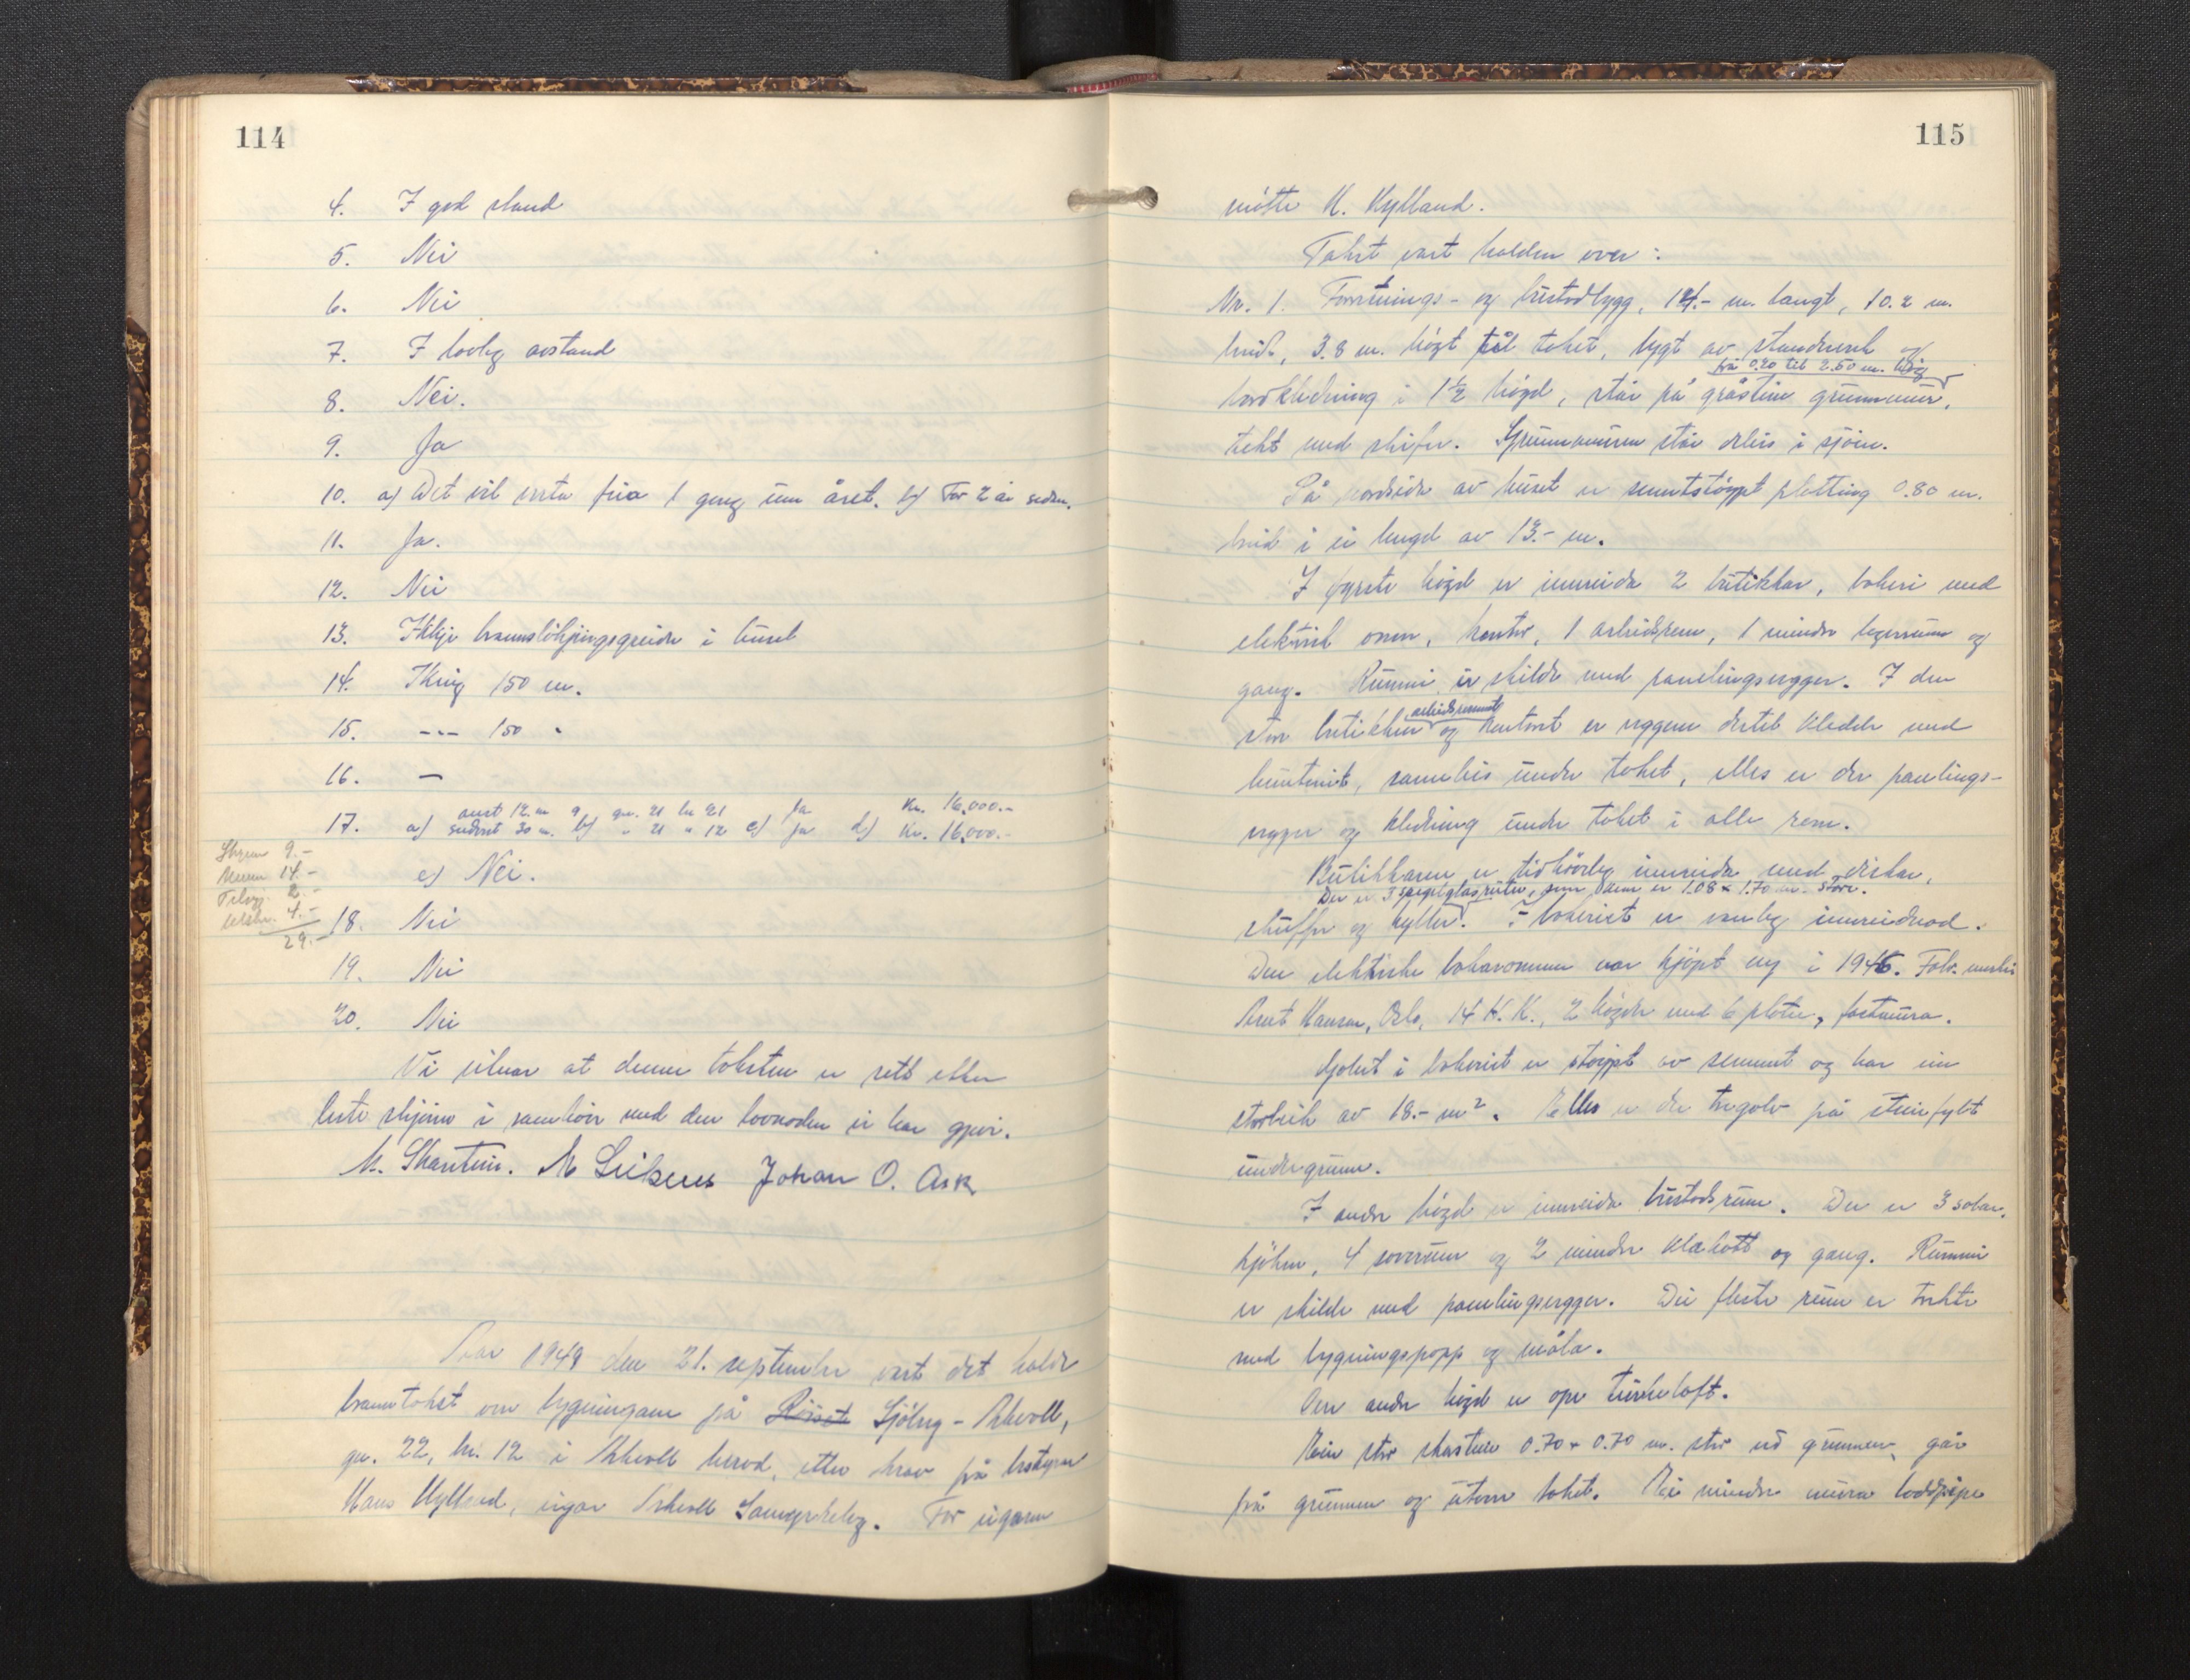 114
4. I god stand
5. Nei
6. Nei
7. I lovleg avstand
8. Nei.
9. Ja
10. a) Det vil verta feia 1 gong um året. b) For 2 år sedan.
11. Ja.
12. Nei
13. Ikkje brannsløkjingsgreide i huset
14. Ikring 150 m.
15. -"- 150 "
16. —
17. a) aust 12. m sudvest 30 m. b) gn. 21 bn 21 " 21 " 12 c) Ja Ja d) Kr. 16,000.- Kr. 16,000.-
Skyss 9.-
14.-
2.-
4.-
29.-
e) Nei.
18. Nei
19. Nei
20. Nei
Vi vitnar at denne taksten er rett etter
beste skjøna i samhøve med den lovnaden vi har gjevi.
M. Skartun. M Leikens Johan O. Ask.
Aar 1949 den 21. september vart det halde
branntakst over bygningane på Röiset Sjöbrg - Askvoll,
gn. 22, bn. 12 i Askvoll herad, etter krav frå bestyrar
Hans Hylland, eigar Askvoll Samyrkelag. For eigaren
115
møtte H. Hylland.
Takst vart halden over:
Nr. 1. Forretnings- og bustadbygg, 14.- m. langt, 10.2 m.
breidt, 3.8 m. høgt til taket, bygt av standverk og
frå 0.20 til 2.50 m. høg
bordkledning i 1½ høgd, står på gråstein grunnmur,
tekt med skifer. Grunnmuren står delvis i sjøen.
På nordsida av huset er sementstøypt platting 0.80 m.
breid i ei lengd av 13.- m.
I fyrste høgd er innreida 2 butikkar, bakeri med
elektrisk omn, kontor, 1 arbeidsrom, 1 mindre lagerrum og
gang. Rummi er skilde med panelingsvegger. I den
arbeidsrommet
store butikken og kontoret er veggene dertil kledde med
huntonit, sameleis under taket, elles er der panelings-
vegger og kledning under taket i alle rom.
Butikkane er tidhøveleg innreida med diskar,
Der er 3 speglglasruter, som kvar er 1.08 x 1.70 m. store.
skuffer og hyller. I bakeriet er vanleg innreidnad.
Den elektriske bakaromnen var kjøpt ny i 1946. Fabr. merke
Arnt Hansen, Oslo, 14 K.K., 2 høgder med 6 plater, fastmura.
Golvet i bakeriet er støypt av sement og har ein
storleik av 18.- m². Elles er der tregolv på steinfylt
undergrunn.
I andre høgd er innreida bustadsrum. Der er 3 stovar,
kjøken, 4 soverum og 2 mindre klekott og gang. Rummi
er skilde med panelingsvegger. Dei fleste rum er trekte
med bygningspapp og måla.
Over andre høgd er ope turkeloft.
Ein stor skorstein 0.70 x 0.70 m. stor ved grunnen, går
frå grunnen og utover taket. Ei mindre mura loddpipe